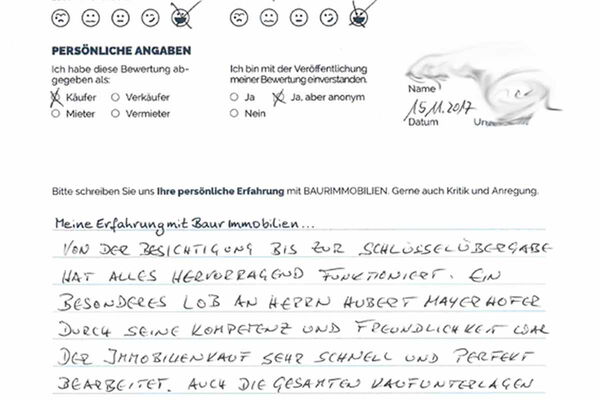 PERSÖNLICHE ANGABEN
Ich habe diese Bewertung ab-
gegeben als:
Käufer Verkäufer
Mieter Vermieter
Ich bin mit der Veröffentlichung
meiner Bewertung einverstanden.
Ja Ja, aber anonym
Nein
Name
15.11.2017
Datum
Bitte schreiben Sie uns Ihre persönliche Erfahrung mit BAURIMMOBILIEN. Gerne auch Kritik und Anregung.
Meine Erfahrung mit Baur Immobilien...
VON DER BESICHTIGUNG BIS ZUR SCHLÜSSELÜBERGABE
HAT ALLES HERVORRAGEND FUNKTIONIERT. EIN
BESONDERES LOB AN HERRN HUBERT MAYERHOFER
DURCH SEINE KOMPETENZ UND FREUNDLICHKEIT WAR
DER IMMOBILIENKAUF SEHR SCHNELL UND PERFEKT
BEARBEITET. AUCH DIE GESAMTEN KAUFUNTERLAGEN